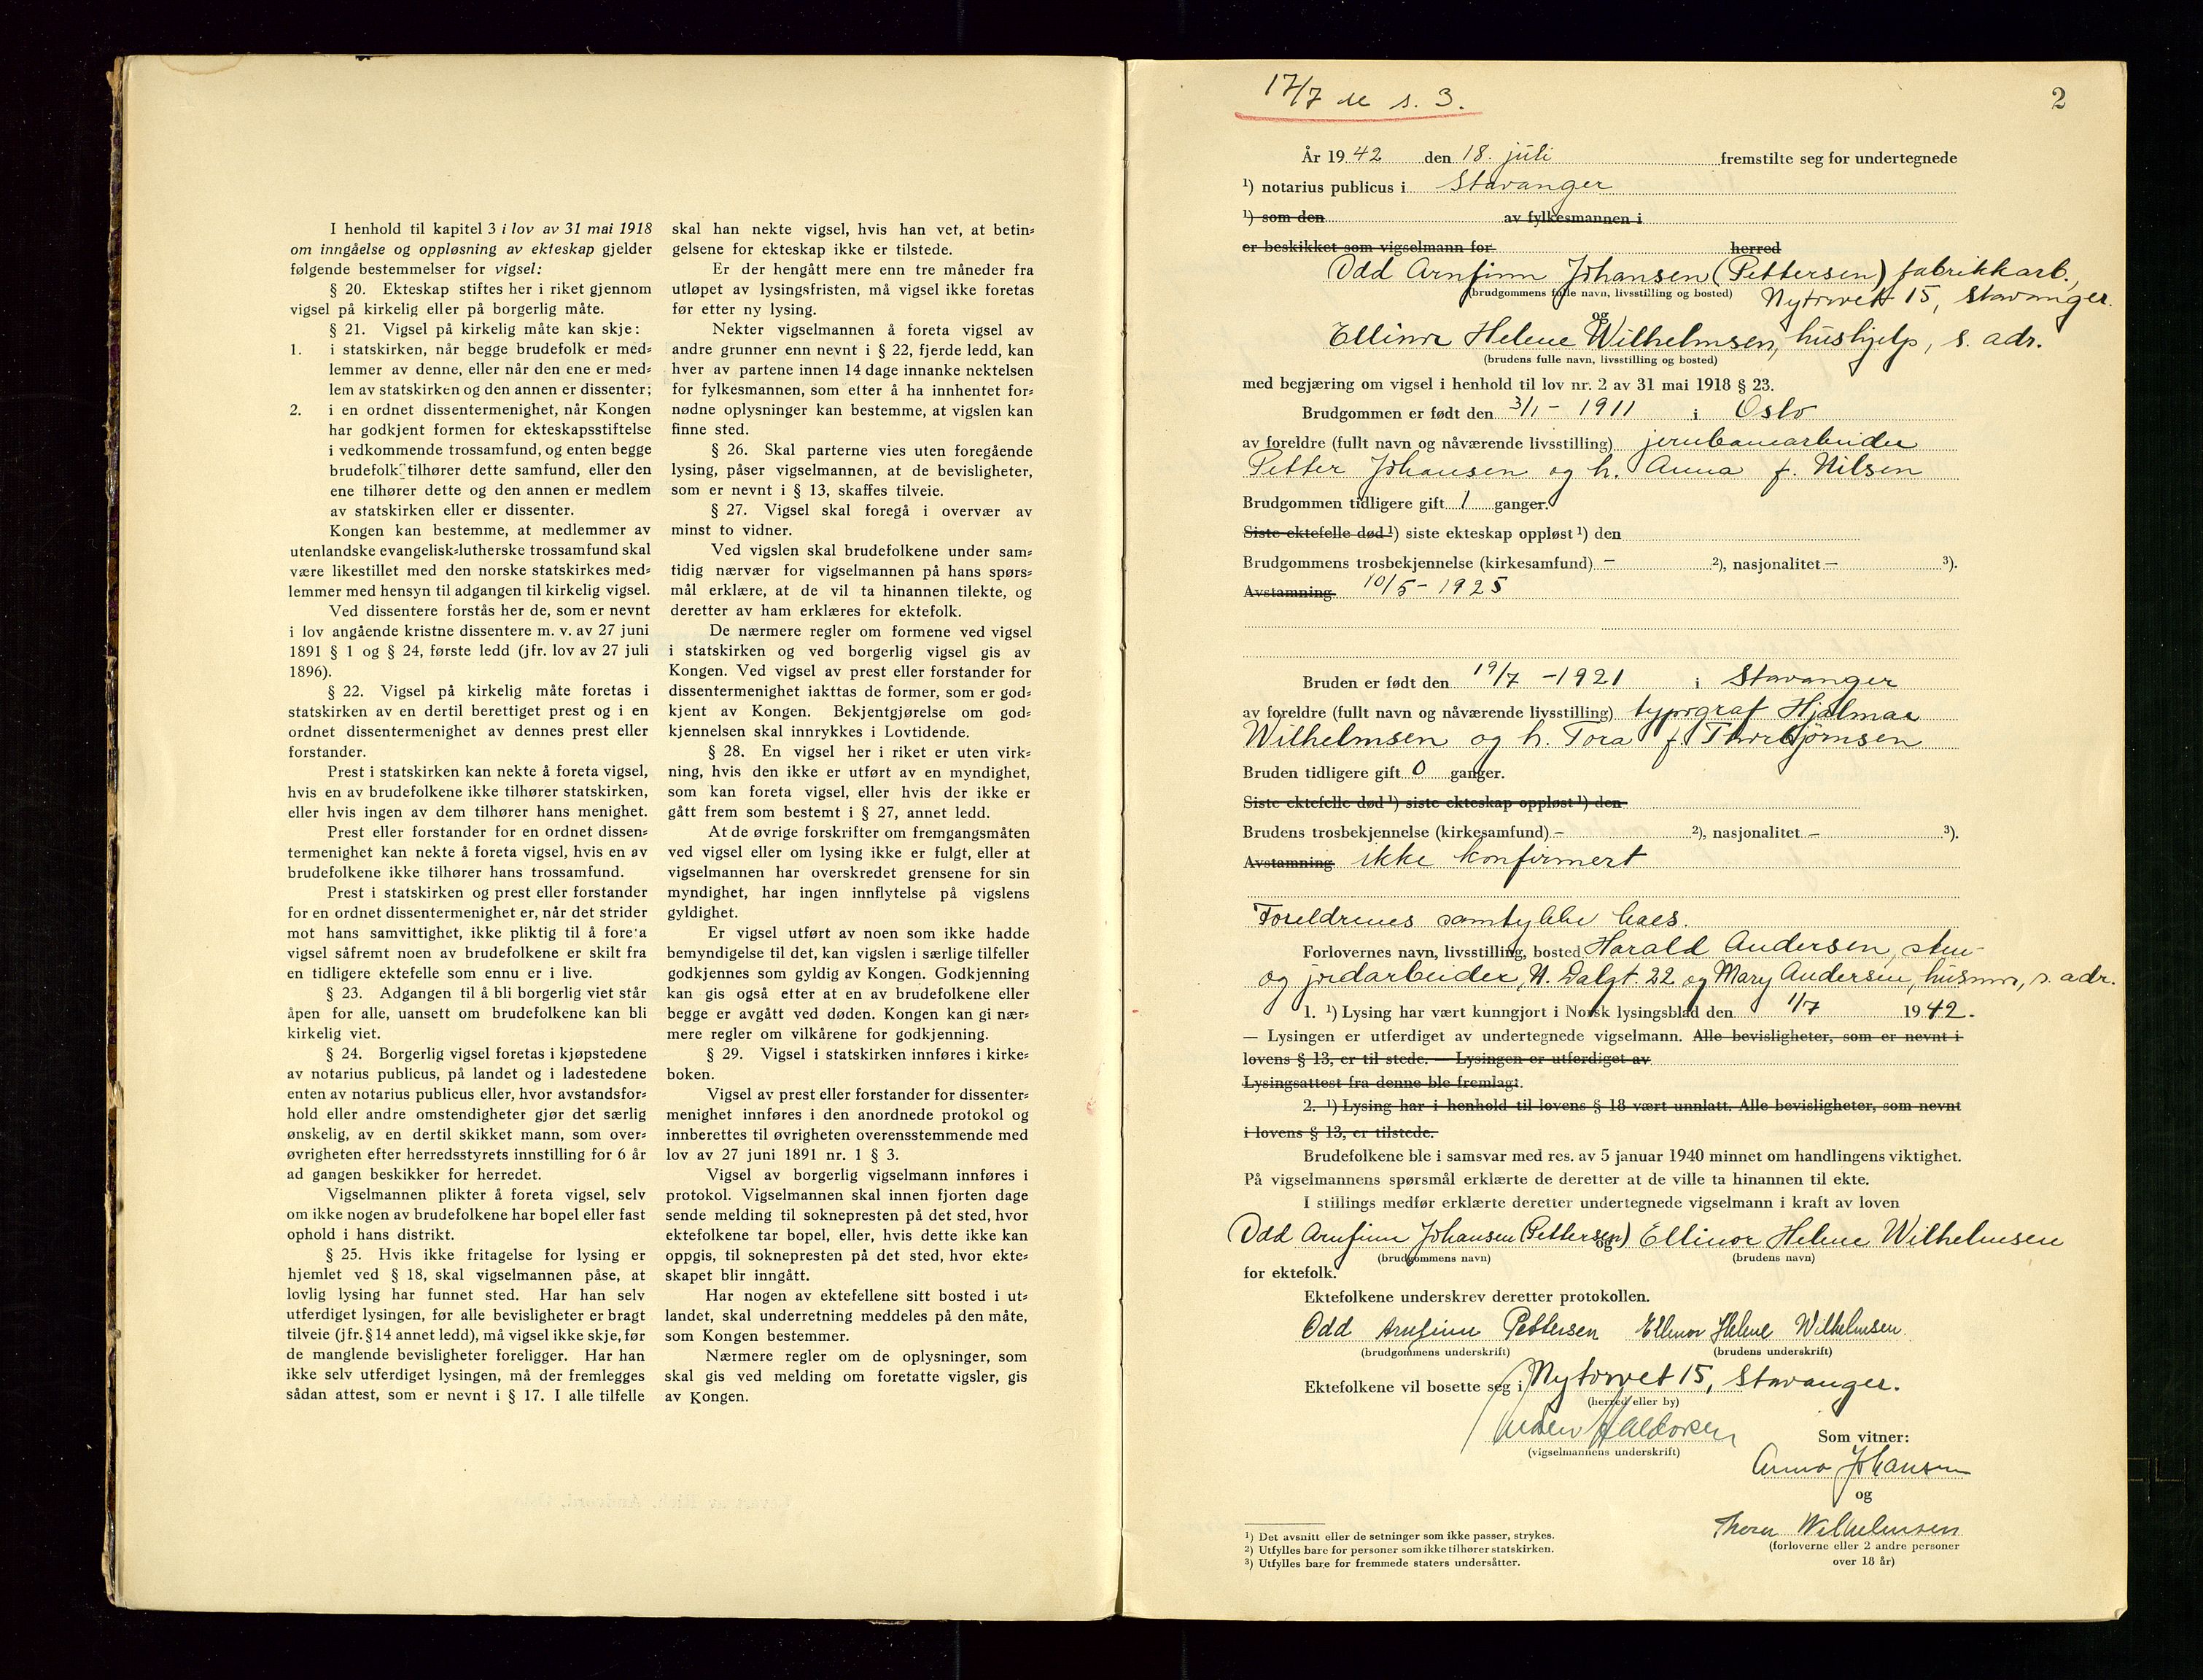 I henhold til kapitel 3 i lov av 31 mai 1918
om inngåelse og oppløsning av ekteskap gjelder
følgende bestemmelser for vigsel:
§ 20. Ekteskap stiftes her i riket gjennom
vigsel på kirkelig eller på borgerlig måte.
§ 21. Vigsel på kirkelig måte kan skje:
1. i statskirken, når begge brudefolk er med=
lemmer av denne, eller når den ene er med=
lem av statskirken og den annen er dissenter;
2. i en ordnet dissentermenighet, når Kongen
har godkjent formen for ekteskapsstiftelse
i vedkommende trossamfund, og enten begge
brudefolk tilhører dette samfund, eller den
ene tilhører dette og den annen er medlem
av statskirken eller er dissenter.
Kongen kan bestemme, at medlemmer av
utenlandske evangelisk=lutherske trossamfund skal
være likestillet med den norske statskirkes med=
lemmer med hensyn til adgangen til kirkelig vigsel.
Ved dissentere forstås her de, som er nevnt
i lov angående kristne dissentere m. v. av 27 juni
1891 § 1 og § 24, første ledd (jfr. lov av 27 juli
1896).
§ 22. Vigsel på kirkelig måte foretas i
statskirken av en dertil berettiget prest og i en
ordnet dissentermenighet av dennes prest eller
forstander.
Prest i statskirken kan nekte å foreta vigsel,
hvis en av brudefolkene ikke tilhører statskirken,
eller hvis ingen av dem tilhører hans menighet.
Prest eller forstander for en ordnet dissen=
termenighet kan nekte å foreta vigsel, hvis en av
brudefolkene ikke tilhører hans trossamfund.
Prest i statskirken og prest eller forstander
for en ordnet dissentermenighet er, når det strider
mot hans samvittighet, ikke pliktig til å foreta
vigsel såfremt noen av brudefolkene er skilt fra
en tidligere ektefelle som ennu er i live.
§ 23. Adgangen til å bli borgerlig viet står
åpen for alle, uansett om brudefolkene kan bli
kirkelig viet.
§ 24. Borgerlig vigsel foretas i kjøpstedene
av notarius publicus, på landet og i ladestedene
enten av notarius publicus eller, hvor avstandsfor=
hold eller andre omstendigheter gjør det særlig
ønskelig, av en dertil skikket mann, som over=
øvrigheten efter herredsstyrets innstilling for 6 år
ad gangen beskikker for herredet.
Vigselmannen plikter å foreta vigsel, selv
om ikke nogen av brudefolkene har bopel eller fast
ophold i hans distrikt.
§ 25. Hvis ikke fritagelse for lysing er
hjemlet ved § 18, skal vigselmannen påse, at
lovlig lysing har funnet sted. Har han selv
utferdiget lysingen, før alle bevisligheter er bragt
tilveie (jfr. § 14 annet ledd), må vigsel ikke skje, før
de manglende bevisligheter foreligger. Har han
ikke selv utferdiget lysingen, må der fremlegges
sådan attest, som er nevnt i § 17. I alle tilfelle
skal han nekte vigsel, hvis han vet, at betin=
gelsene for ekteskap ikke er tilstede.
Er der hengått mere enn tre måneder fra
utløpet av lysingsfristen, må vigsel ikke foretas
før etter ny lysing.
Nekter vigselmannen å foreta vigsel av
andre grunner enn nevnt i § 22, fjerde ledd, kan
hver av partene innen 14 dage innanke nektelsen
for fylkesmannen, som etter å ha innhentet for=
nødne oplysninger kan bestemme, at vigslen kan
finne sted.
§ 26. Skal parterne vies uten foregående
lysing, påser vigselmannen, at de bevisligheter,
som er nevnt i § 13, skaffes tilveie.
§ 27. Vigsel skal foregå i overvær av
minst to vidner.
Ved vigslen skal brudefolkene under sam=
tidig nærvær for vigselmannen på hans spørs=
mål erklære, at de vil ta hinannen tilekte, og
deretter av ham erklæres for ektefolk.
De nærmere regler om formene ved vigsel
i statskirken og ved borgerlig vigsel gis av
Kongen. Ved vigsel av prest eller forstander for
dissentermenighet iakttas de former, som er god=
kjent av Kongen. Bekjentgjørelse om god=
kjennelsen skal innrykkes i Lovtidende.
§ 28. En vigsel her i riket er uten virk=
ning, hvis den ikke er utført av en myndighet,
som kan foreta vigsel, eller hvis der ikke er
gått frem som bestemt i § 27, annet ledd.
At de øvrige forskrifter om fremgangsmåten
ved vigsel eller om lysing ikke er fulgt, eller at
vigselmannen har overskredet grensene for sin
myndighet, har ingen innflytelse på vigslens
gyldighet.
Er vigsel utført av noen som ikke hadde
bemyndigelse til det, kan vigslen i særlige tilfeller
godkjennes som gyldig av Kongen. Godkjenning
kan gis også etter at en av brudefolkene eller
begge er avgått ved døden. Kongen kan gi nær=
mere regler om vilkårene for godkjenning.
§ 29. Vigsel i statskirken innføres i kirke=
boken.
Vigsel av prest eller forstander for dissenter=
menighet innføres i den anordnede protokol og
innberettes til øvrigheten overensstemmende med
lov av 27 juni 1891 nr. 1 § 3.
Vigsel av borgerlig vigselmann innføres i
protokol. Vigselmannen skal innen fjorten dage
sende melding til soknepresten på det sted, hvor
ektefolkene tar bopel, eller, hvis dette ikke kan
oppgis, til soknepresten på det sted, hvor ekte=
skapet blir inngått.
Har nogen av ektefellene sitt bosted i ut=
landet, skal underretning meddeles på den måte,
som Kongen bestemmer.
Nærmere regler om de oplysninger, som
skal gis ved melding om foretatte vigsler, gis
av Kongen.
17/7 se s. 3.
2
År 1942 den 18. juli fremstilte seg for undertegnede
¹) notarius publicus i Stavanger
¹) som den av fylkesmannen i
er beskikket som vigselmann for herred
Odd Arnfinn Johansen (Pettersen) fabrikkarb.,
(brudgommens fulle navn, livsstilling og bosted) Nytorvet 15, Stavanger.
og
Ellinor Helene Wilhelmsen, hushjelp, s. adr.
(brudens fulle navn, livsstilling og bosted)
med begjæring om vigsel i henhold til lov nr. 2 av 31 mai 1918 § 23.
Brudgommen er født den 3/1 - 1911 i Oslo
av foreldre (fullt navn og nåværende livsstilling) jernbanearbeider
Petter Johansen og h. Anna f. Nilsen
Brudgommen tidligere gift 1 ganger.
Siste ektefelle død ¹) siste ekteskap oppløst ¹) den
Brudgommens trosbekjennelse (kirkesamfund) — ²), nasjonalitet — ³).
Avstamning 10/5 - 1925
Bruden er født den 19/7 - 1921 i Stavanger
av foreldre (fullt navn og nåværende livsstilling) typograf Hjalmar
Wilhelmsen og h. Tora f. Thorbjørnsen
Bruden tidligere gift 0 ganger.
Siste ektefelle død ¹) siste ekteskap oppløst ¹) den
Brudens trosbekjennelse (kirkesamfund) — ²), nasjonalitet — ³).
Avstamning ikke konfirmert
Foreldrenes samtykke haes.
Forlovernes navn, livsstilling, bosted Harald Andersen, sten-
og jordarbeider, N. Dalgt. 22 og Mary Andersen, husmor, s. adr.
1. ¹) Lysing har vært kunngjort i Norsk lysingsblad den 1/7 1942.
— Lysingen er utferdiget av undertegnede vigselmann. Alle bevisligheter, som er nevnt i
lovens § 13, er til stede. — Lysingen er utferdiget av
Lysingsattest fra denne ble fremlagt.
2. ¹) Lysing har i henhold til lovens § 18 vært unnlatt. Alle bevisligheter, som nevnt
i lovens § 13, er tilstede.
Brudefolkene ble i samsvar med res. av 5 januar 1940 minnet om handlingens viktighet.
På vigselmannens spørsmål erklærte de deretter at de ville ta hinannen til ekte.
I stillings medfør erklærte deretter undertegnede vigselmann i kraft av loven
Odd Arnfinn Johansen (Pettersen) og Ellinor Helene Wilhelmsen
(brudgommens navn) (brudens navn)
for ektefolk.
Ektefolkene underskrev deretter protokollen.
Odd Arnfinn Pettersen Ellinor Helene Wilhelmsen
(brudgommens underskrift) (brudens underskrift)
Ektefolkene vil bosette seg i Nytorvet 15, Stavanger.
(herred eller by)
(vigselmannens underskrift)
Som vitner:
Anna Johansen
og
Thora Wilhelmsen
(forloverne eller 2 andre personer
over 18 år)
¹) Det avsnitt eller de setninger som ikke passer, strykes.
²) Utfylles bare for personer som ikke tilhører statskirken.
³) Utfylles bare for fremmede staters undersåtter.